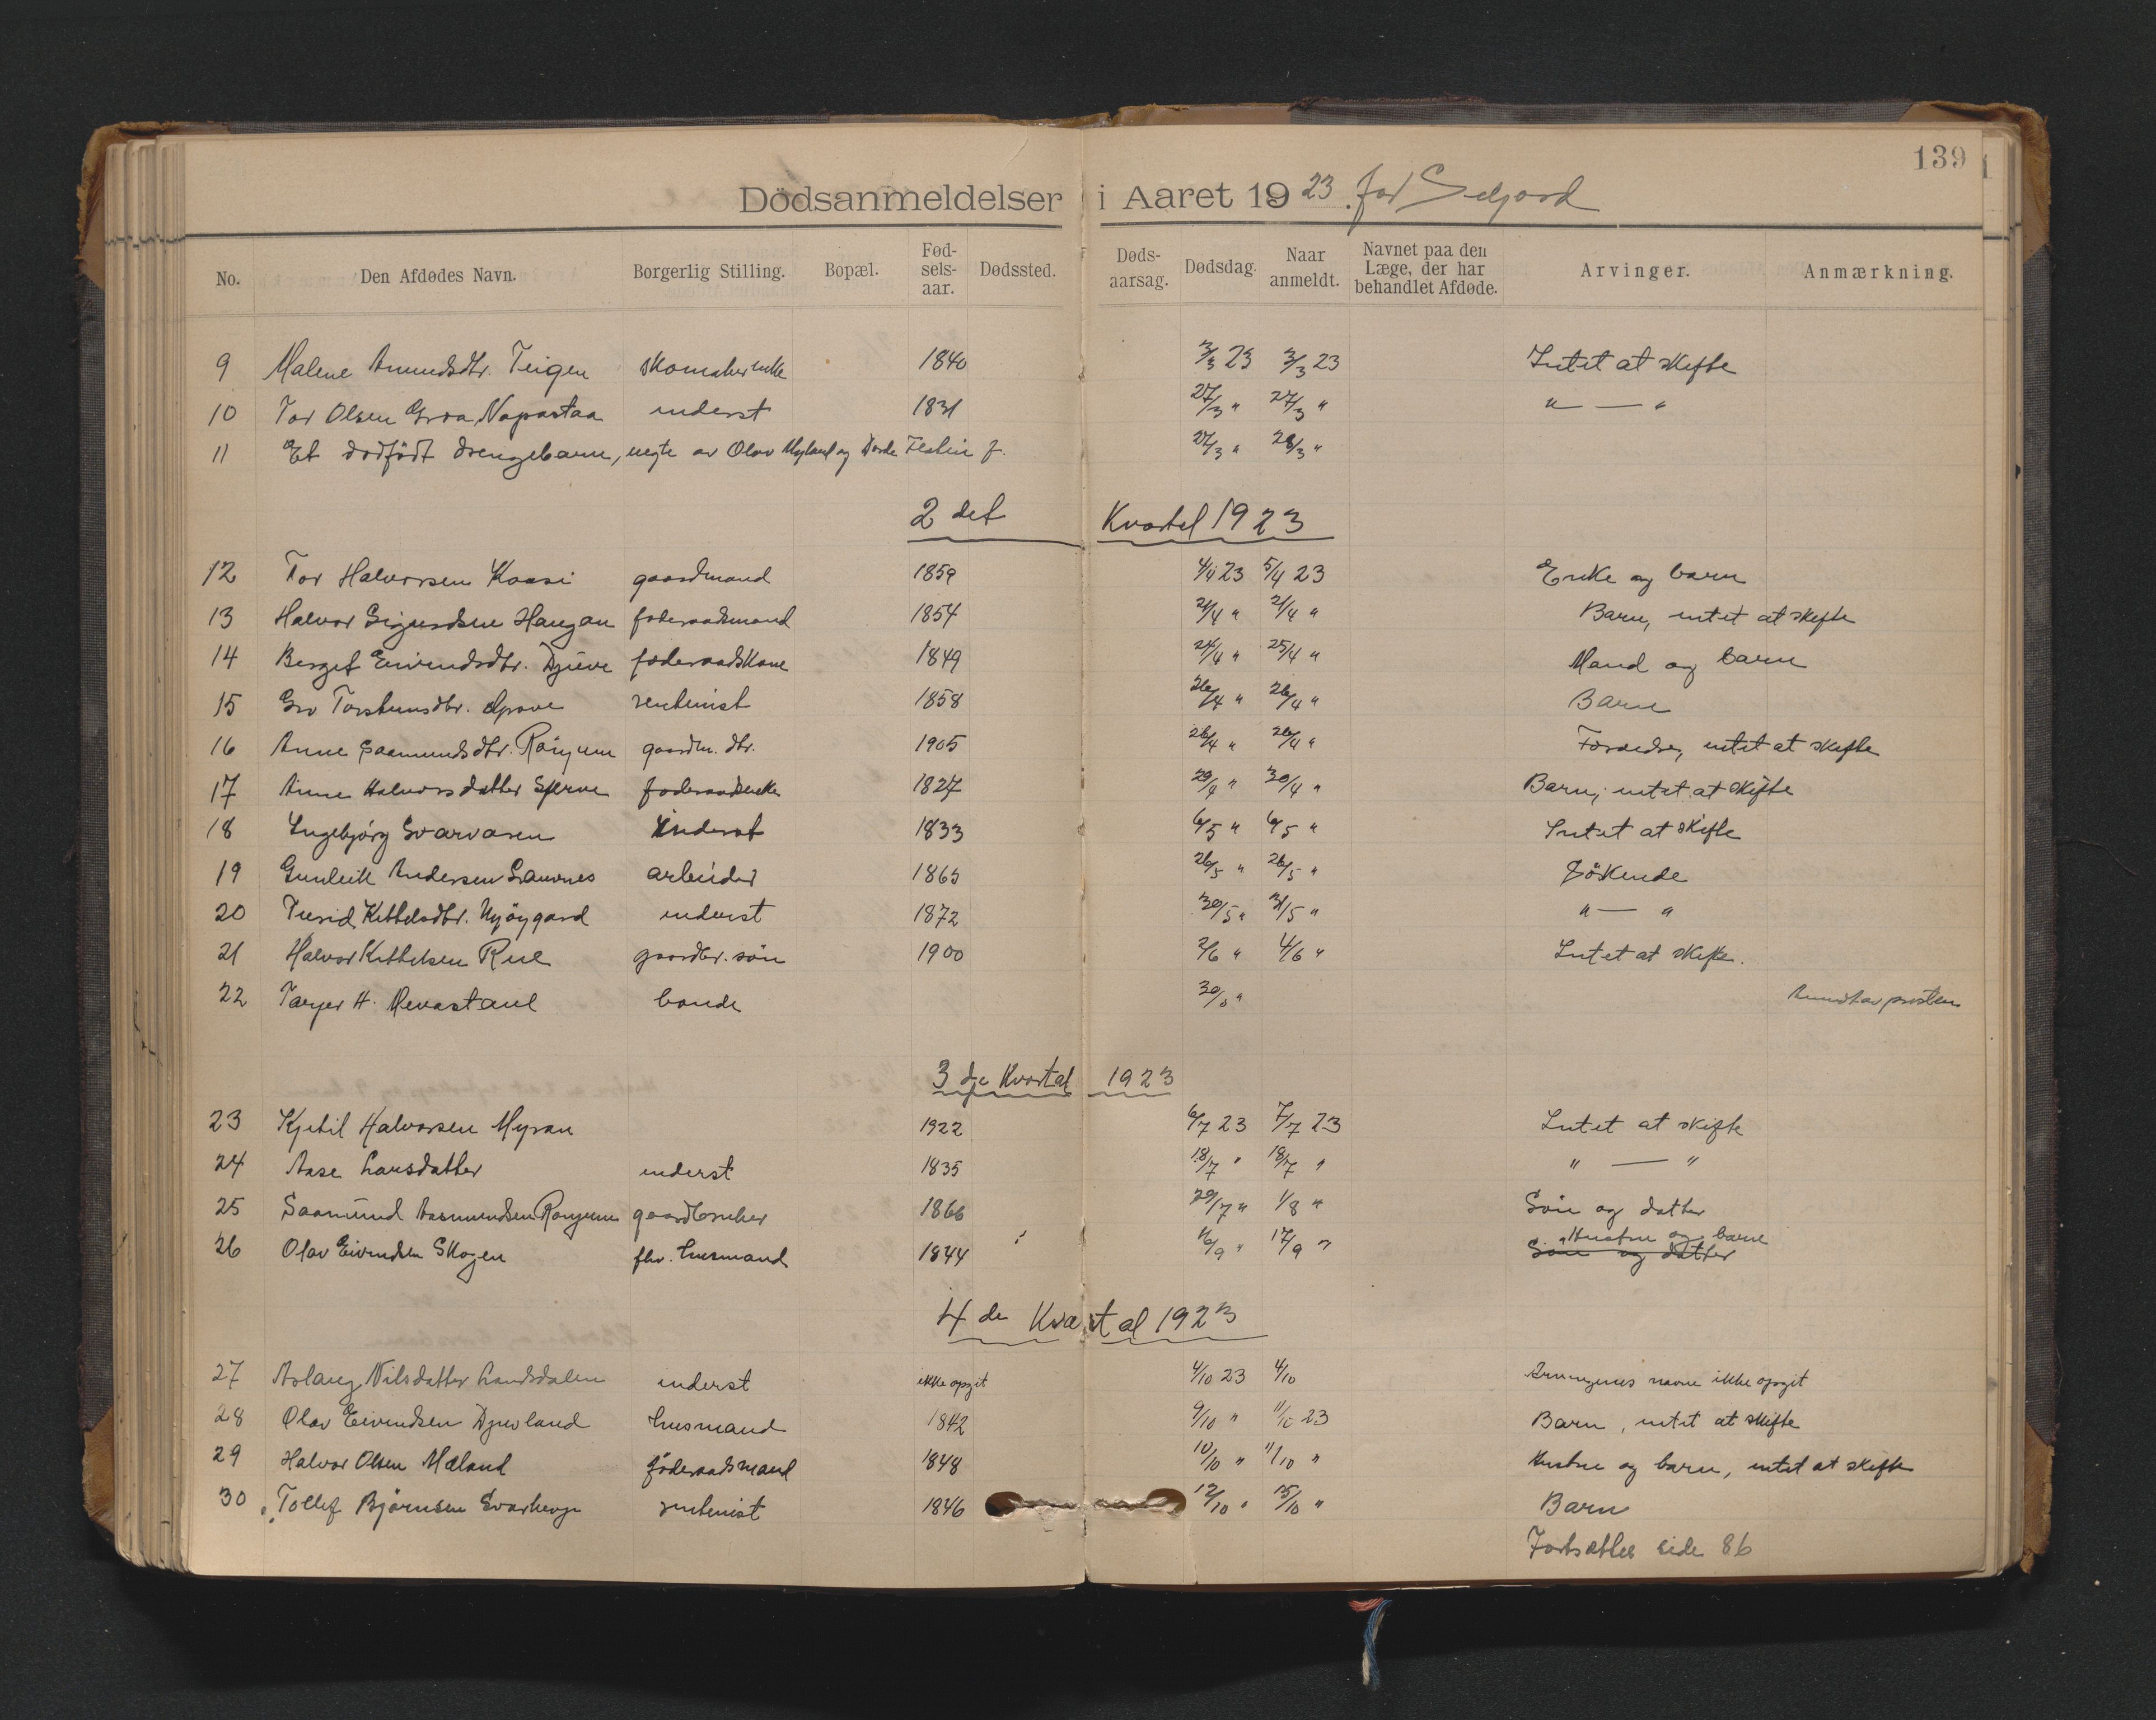 139
Dödsanmeldelser i Aaret 1923. for Seljord
No. Den Afdødes Navn. Borgerlig Stilling. Bopæl. Fød-sels-aar. Dødssted. Døds-aarsag. Dødsdag. Naar anmeldt. Navnet paa den Læge, der har behandlet Afdøde. Arvinger. Anmærkning.
9 Malene Amundsdtr. Teigen skomakerenke 1840 3/3 23 3/3 23 Intet at skifte
10 Tor Olsen Groa Napastaa inderst 1831 27/3 " 27/3 " " — "
11 Et dødfödt drengebarn, uegte av Olav Nyland og Dorte 27/3 " 28/3 "
2 det Kvartal 1923
12 Tor Halvorsen Kaasi gaardmand 1859 4/4 23 5/4 23 Enke og barn
13 Halvor Sigurdsen Haugan föderaadsmand 1854 21/4 " 21/4 " Barn, intet at skifte
14 Berget Eivindsdtr. Djuve föderaadskone 1849 24/4 " 25/4 " Mand og barn
15 Gro Torsteinsdtr. rentenist 1858 26/4 " 26/4 " Barn
16 Anne Saamundsdtr. Rönjum gaardm. dtr. 1905 26/4 " 26/4 " Forældre, intet at skifte
17 Anne Halvorsdatter föderaadsenke 1827 29/4 " 30/4 " Barn, intet at skifte
18 Ingebjörg Svarvaren inderst 1833 6/5 " 6/5 " Intet at skifte
19 Gunleik Andersen arbeider 1865 26/5 " 26/5 " Söskende
20 Turid Kittelsdtr. Nyöygard inderst 1872 30/5 " 31/5 " " — "
21 Halvor Kittelsen Rue gaardbr. sön 1900 2/6 " 4/6 " Intet at skifte.
22 Tarjer H. Nevastaul bonde 30/6 " Anmeldt av presten
3 dje Kvartal 1923
23 Kjetil Halvorsen Myran 1922 6/7 23 7/7 23 Intet at skifte
24 Aase Larsdatter inderst 1835 18/7 " 18/7 " " — "
25 Saamund Aasmundsen Rönjum gaardbruker 1866 29/7 " 1/8 " Sön og datter
26 Olav Eivindsen Skogen fhv. husmand 1844 16/9 " 17/9 " Hustru og barn
Sön og datter
4 de Kvartal 1923
27 Aslaug Nilsdatter Landsdalen inderst ikke opgit 4/10 23 4/10 Arvingenes navne ikke opgit
28 Olav Eivindsen Djuvland husmand 1842 9/10 " 11/10 23 Barn, intet at skifte
29 Halvor Olsen Mæland föderaadsmand 1848 10/10 " 11/10 " Hustru og barn, intet at skifte
30 Tollef Björnsen Svarheva rentenist 1846 12/10 " 15/10 " Barn
Fortsættes side 86